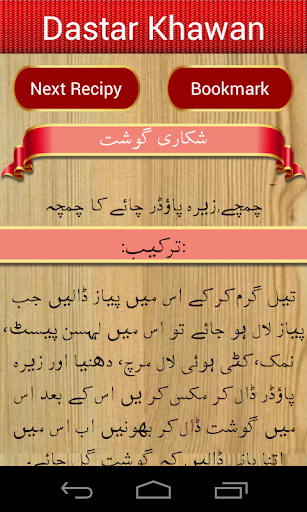 Dastar Khawan
Next Recipy
Bookmark
شکاری گوشت
چمچے,زیرہ پاؤڈر چائے کا چمچہ
ترکیب:
تیل گرم کرکے اس میں پیاز ڈالیں جب
پیاز لال ہو جائے تو اس میں لہسن پیسٹ،
نمک،کٹی ہوئی لال مرچ، دھنیا اور زیرہ
پاؤڈر ڈال کر مکس کر یں اس کے بعد اس
میں گوشت ڈال کر بھونیں اب اس میں
اتنا پانی ڈالیں کہ گوشت گل جائے۔